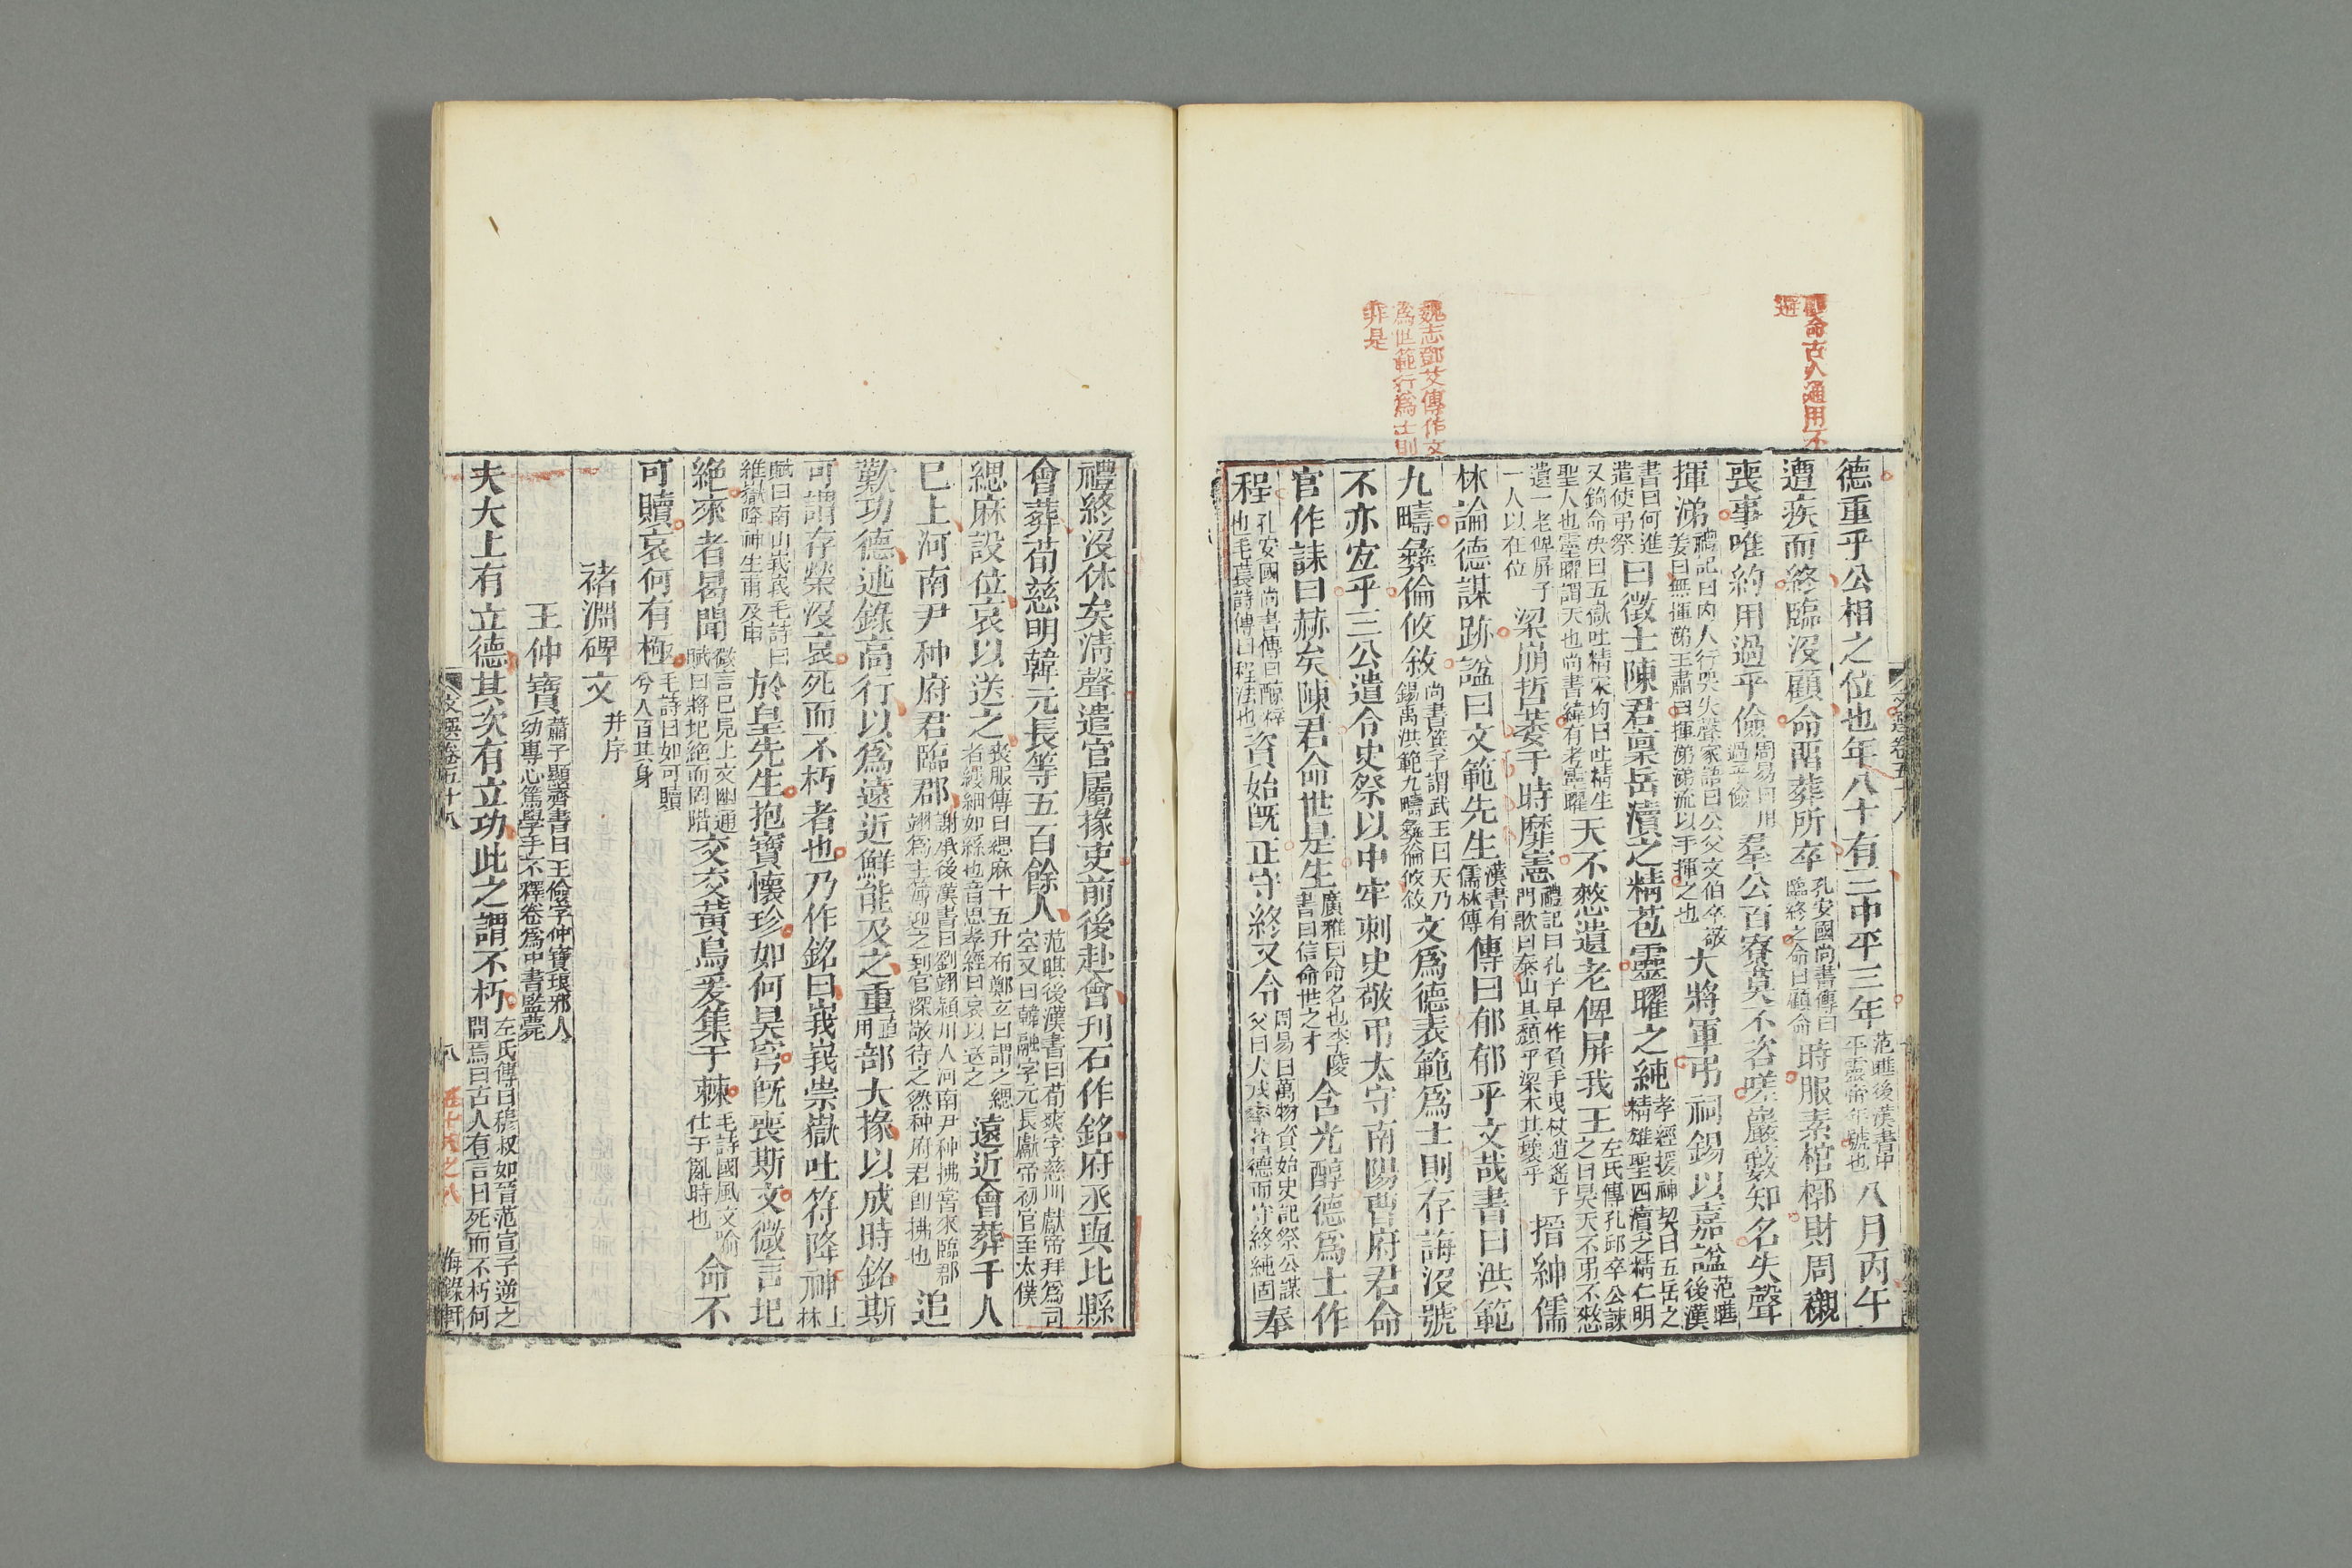 顧命古人通用不
避
魏志鄧艾傳作文
爲世範行爲士則
非是
德重乎公相之位也年八十有三中平三年范曄後漢書中平靈帝年號也八月丙午
遭疾而終臨沒顧命留葬所卒孔安國尚書傳曰臨終之命曰顧命時服素棺槨財周櫬
喪事唯約用過乎儉周易曰用過乎儉羣公百寮莫不咨嗟巖藪知名失聲
揮涕禮記曰內人行哭失聲家語曰公父文伯卒敬姜曰無揮涕王肅曰揮涕涕流以手揮之也大將軍弔祠錫以嘉諡范曄後漢
書曰何進遣使弔祭曰徵士陳君禀岳瀆之精苞靈曜之純孝經援神契曰五岳之精雄聖四瀆之精仁明
又鉤命決曰五嶽吐精宋均曰吐精生聖人也靈曜謂天也尚書緯有考靈曜天不憖遺老俾屏我王左氏傳孔邱卒公誄之曰旻天不弔不憖
遺一老俾屏予一人以在位梁崩哲萎于時靡憲禮記曰孔子早作負手曳杖逍遙于門歌曰泰山其頹乎梁木其壞乎搢紳儒
林論德謀跡諡曰文範先生漢書有儒林傳傳曰郁郁乎文哉書曰洪範
九疇彝倫攸敘尚書箕子謂武王曰天乃錫禹洪範九疇彝倫攸敘文爲德表範爲士則存誨沒號
不亦宐乎三公遣令史祭以中牢刺史敬弔太守南陽曹府君命
官作誄曰赫矣陳君命世是生廣雅曰命名也李陵書曰信命世之才含光醇德爲士作
程孔安國尚書傳曰醇粹也毛萇詩傳曰程法也資始旣正守終又令周易曰萬物資始史記祭公謀父曰犬戎率舊德而守終純固奉
禮終沒休矣淸聲遣官屬掾吏前後赴會刊石作銘府丞與比縣
會葬荀慈明韓元長等五百餘人范曄後漢書曰荀爽字慈明獻帝拜爲司空又曰韓融字元長獻帝初官至太僕
緦麻設位哀以送之喪服傳曰緦麻十五升布鄭玄曰謂之緦者縷細如絲也音思孝經曰哀以送之遠近會葬千人
已上河南尹种府君臨郡謝承後漢書曰劉翊潁川人河南尹种拂當來臨郡翊爲主簿迎之到官深敬待之然种府君卽拂也追
歎功德述錄高行以爲遠近鮮能及之重直用部大掾以成時銘斯
可謂存榮沒哀死而不朽者也乃作銘曰峩峩崇嶽吐符降神上林
賦曰南山峩峩毛詩曰維嶽降神生甫及申於皇先生抱寶懷珍如何昊穹旣喪斯文微言圯
絶來者曷聞微言已見上文幽通賦曰將圯絶而罔階交交黃鳥爰集于棘毛詩國風文喻仕于亂時也命不
可贖哀何有極毛詩曰如可贖兮人百其身
褚淵碑文幷序
王仲寶蕭子顯齊書曰王儉字仲寶琅邪人幼專心篤學手不釋卷爲中書監薨
夫太上有立德其次有立功此之謂不朽左氏傳曰穆叔如晉范宣子逆之問焉曰古人有言曰死而不朽何
文選卷五十八
八
五十八之八
海錄軒